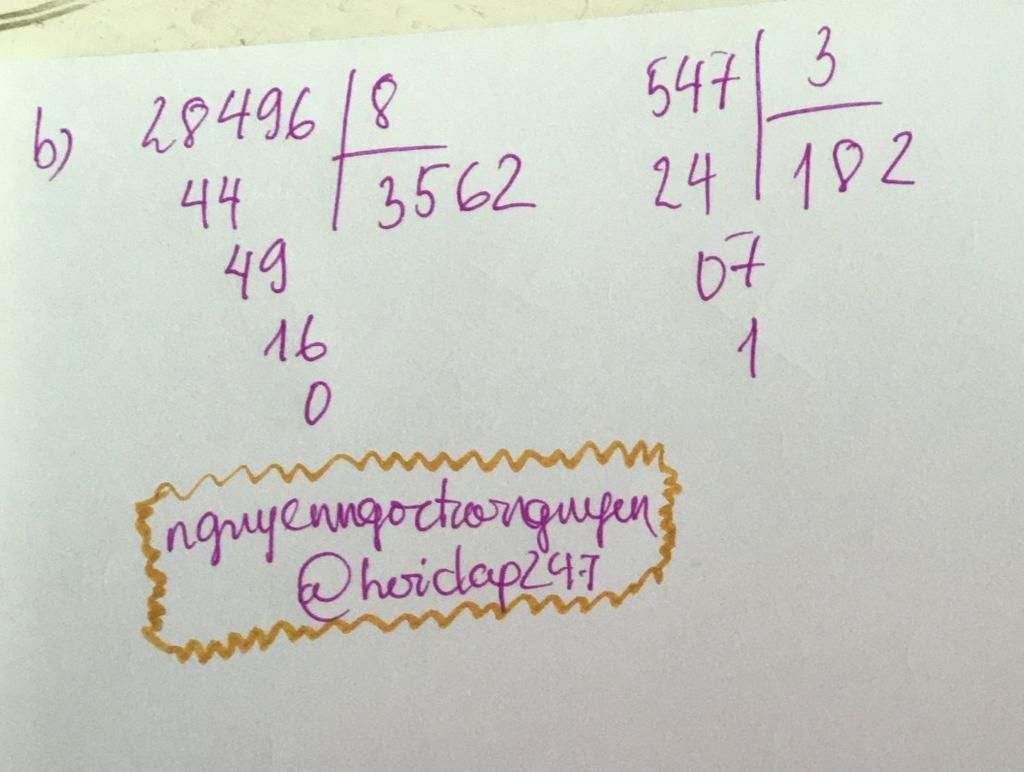 b) 28496 8
44 3562
49
16
0
547 3
24 182
07
1
@hoidap247